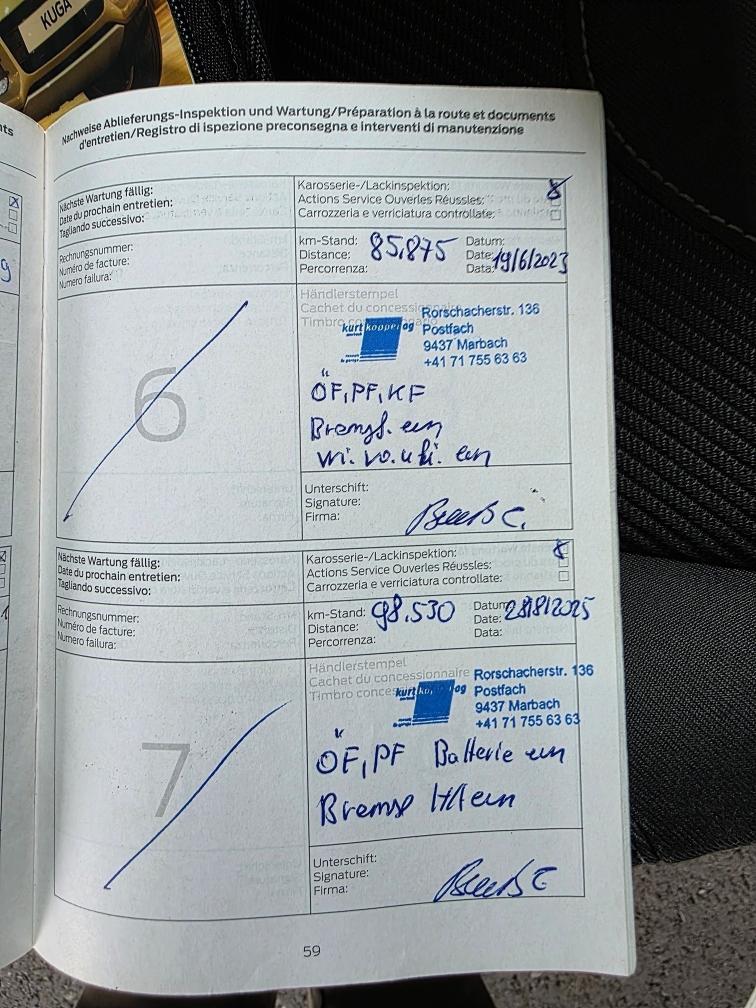 KUGA
Nachweise Ablieferungs-Inspektion und Wartung/Préparation à la route et documents
d'entretien/Registro di ispezione preconsegna e interventi di manutenzione
Nächste Wartung fällig:
Date du prochain entretien:
Tagliando successivo:
Karosserie-/Lackinspektion:
Actions Service Ouverles Réussles:
Carrozzeria e verriciatura controllate:
Rechnungsnummer:
Numéro de facture:
Numero failura:
km-Stand: 85.875
Distance:
Percorrenza:
Datum:
Date: 19/6/2023
Data:
6
Händlerstempel
Cachet du concessionnaire
Timbro
kurt koppel ag
Rorschacherstr. 136
Postfach
9437 Marbach
+41 71 755 63 63
ÖF, PF, KF
Bremsf. ein
wi. vo. u hi. ein
Unterschift:
Signature:
Firma:
Nächste Wartung fällig:
Date du prochain entretien:
Tagliando successivo:
Karosserie-/Lackinspektion:
Actions Service Ouverles Réussles:
Carrozzeria e verriciatura controllate:
Rechnungsnummer:
Numéro de facture:
Numero failura:
km-Stand: 98.530
Distance:
Percorrenza:
Datum: 28/8/2025
Date:
Data:
7
Händlerstempel
Cachet du concessionnaire
Timbro
kurt ag
Rorschacherstr. 136
Postfach
9437 Marbach
+41 71 755 63 63
ÖF, PF Batterie ein
Bremse
Unterschift:
Signature:
Firma:
59